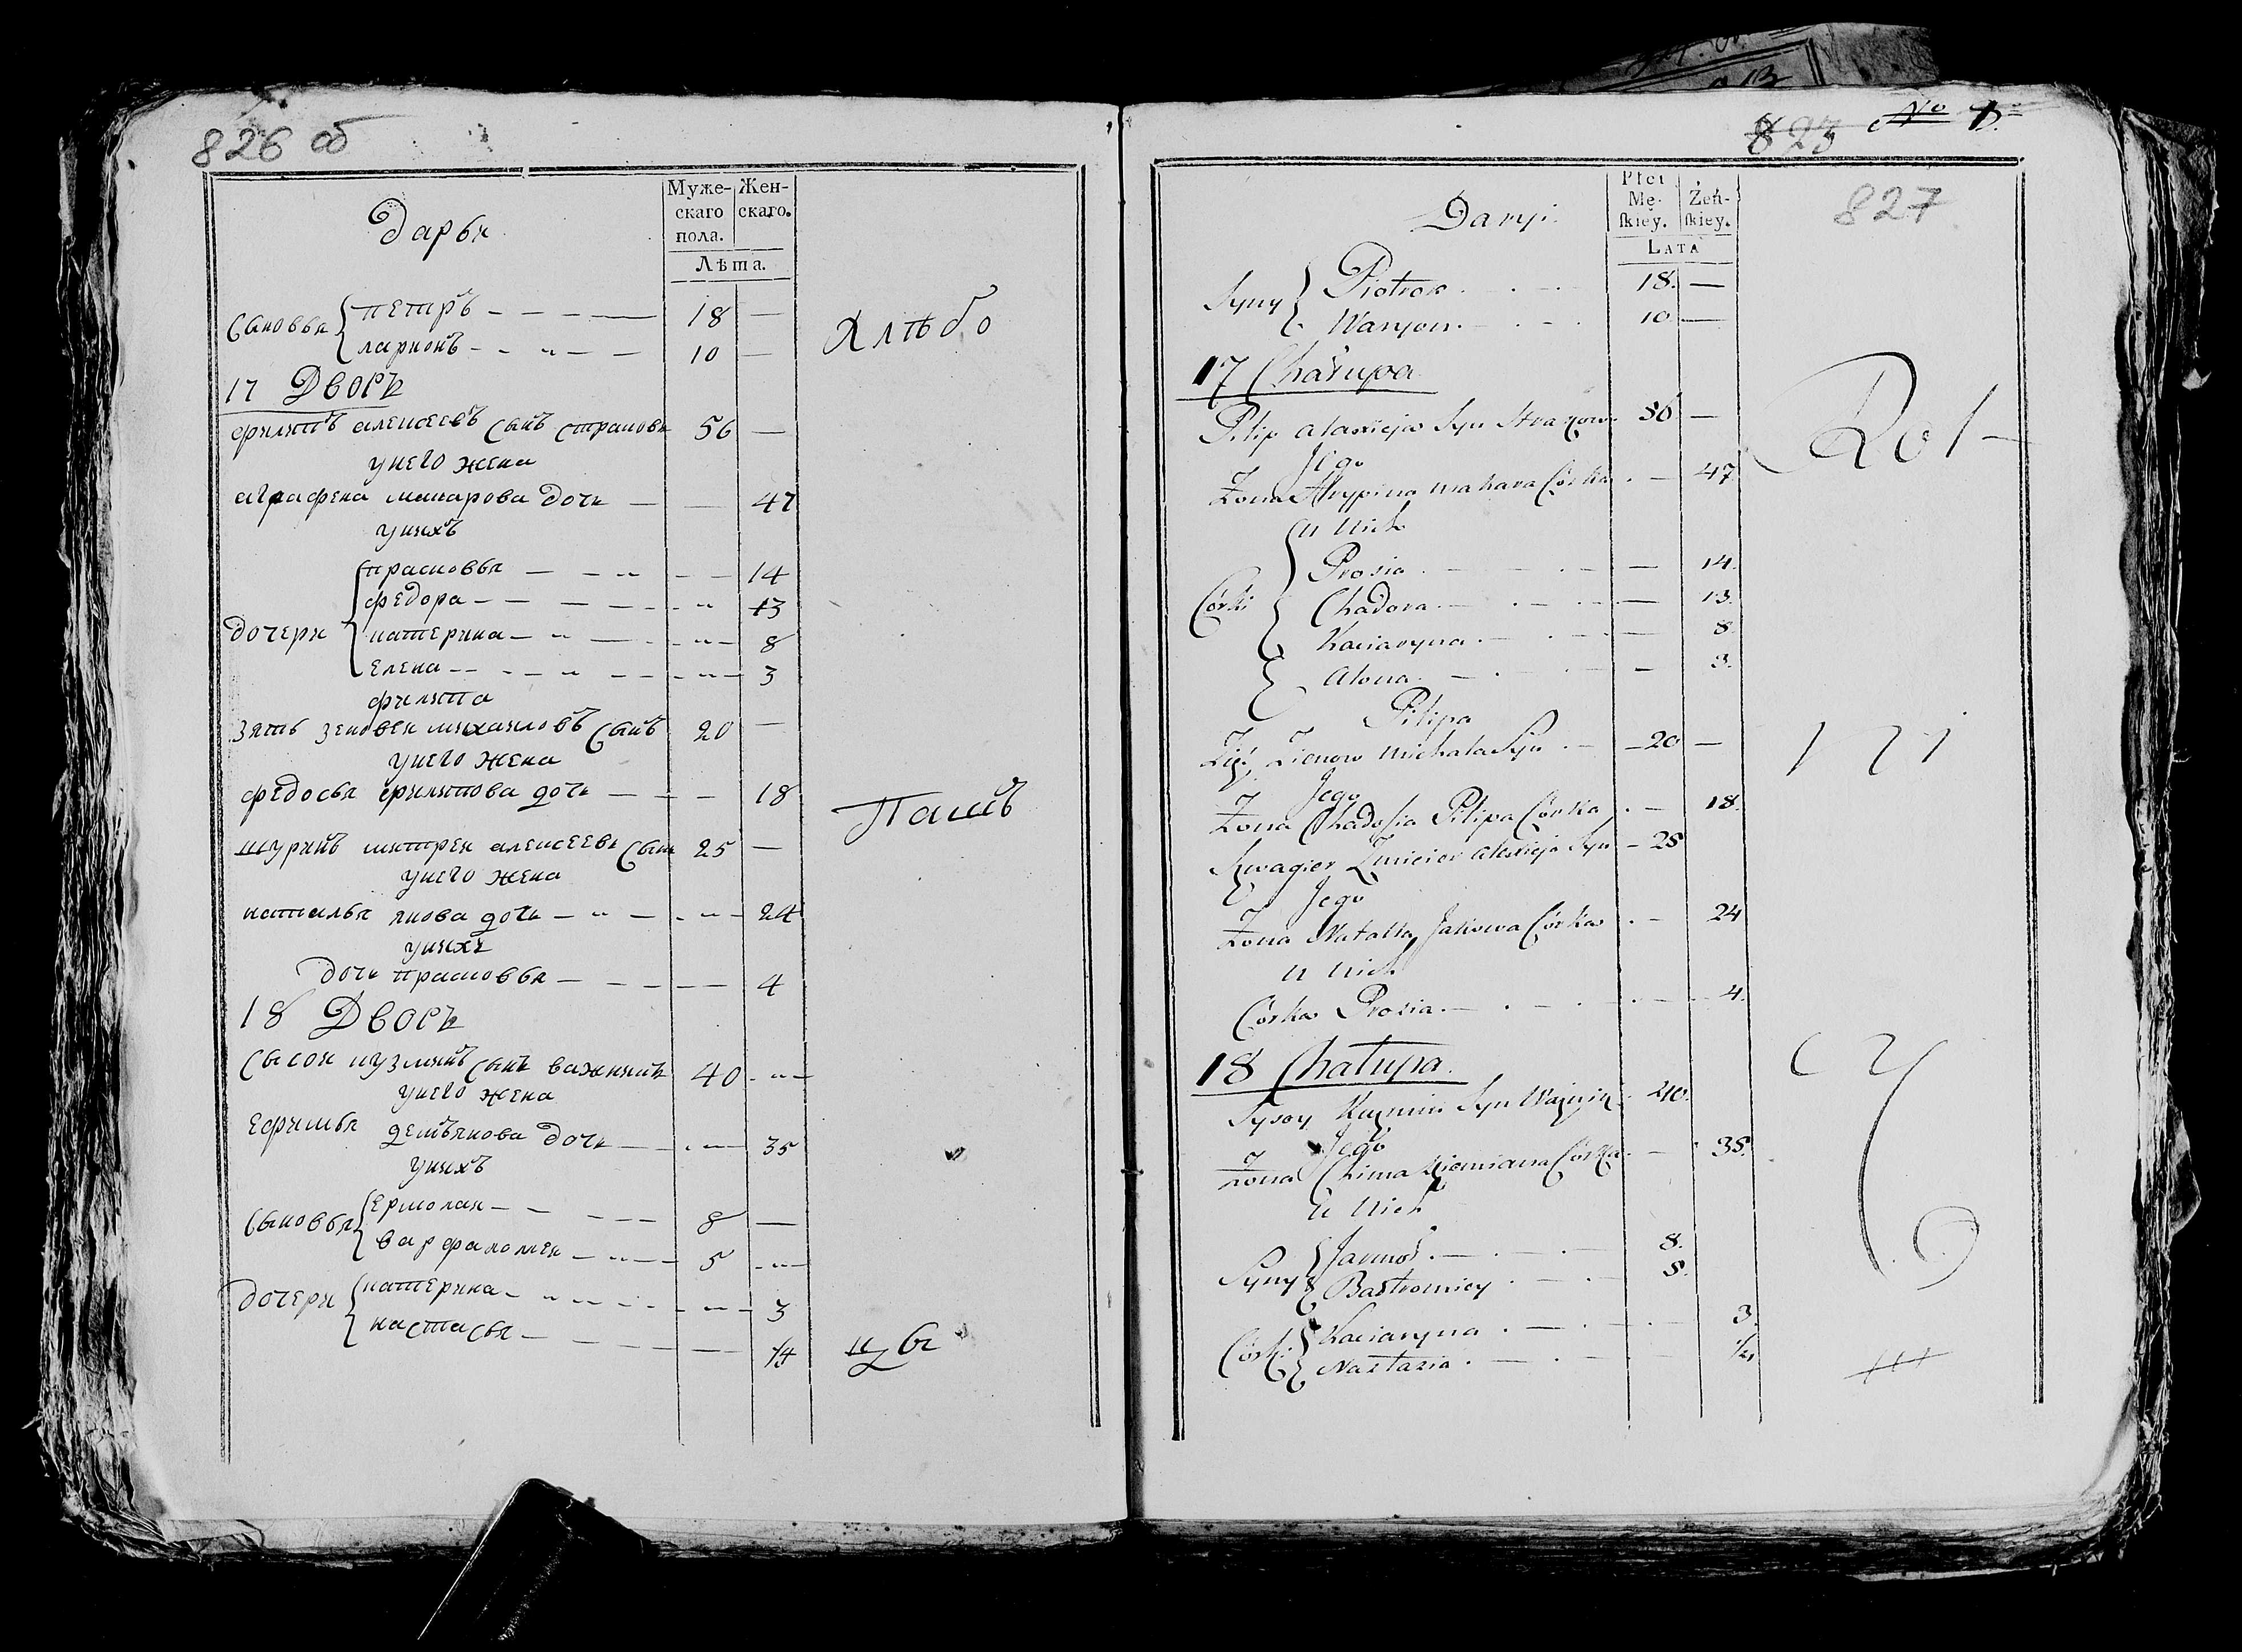 826 об
Муже-
скаго
пола.
Жен-
скаго.
Лѣта.
Дарьи
Сыновьи
петръ 18 —
ларионъ 10 —
Хлѣбо
17 Дворъ
филипъ алексеевъ сынъ 56 —
унего жена
аграфена макарова дочь — 47
унихъ
дочери
прасковья — 14
федора — 13
катерина — 8
елена — 3
филипа
зять зеновеи михаиловъ сынъ 20 —
унего жена
федосья филипова дочь — 18
Пашъ
шуринъ митреи алексеевъ сынъ 25 —
унего жена
наталья якова дочь — 24
унихъ
дочь прасковья — 4
18 Дворъ
Сысои кузминъ сынъ важникъ 40 —
унего жена
Ефимья демьянова дочь — 35
унихъ
Сыновья
Ермолаи 8 —
варфаломеи 5 —
дочери
катерина — 3
настасья —
823 No
827
Płci
Mę-
skiey.
Żeń-
skiey.
LATA
Daryi
Syny
Piotron 18. —
Waryon 10 —
17 Chałupa
Pilip alaxieja Syn 56 —
Jego
Żona Ahrypina makara Córka — 47
u nich
Córki
Prosia — 14.
Chadora — 13.
Kaciaryna — 8
Alona — 3.
Pilipa
Zięć Zienow michała Syn — 20 —
Jego
Żona Chadosia Pilipa Córka — 18.
Szwagier Zmicier alexieja Syn — 25
Jego
Żona Natalla Jakowa Córka — 24
u nich
Córka Prosia — 4.
18 Chałupa.
Sysoy Kuzmin Syn Ważnik 40.
Jego
Żona Chima Dziemiana Córka — 35.
u nich
Syny
Jarmoł 8.
Bastromiey 5.
Córki
Kaciaryna — 3.
Nastazia —